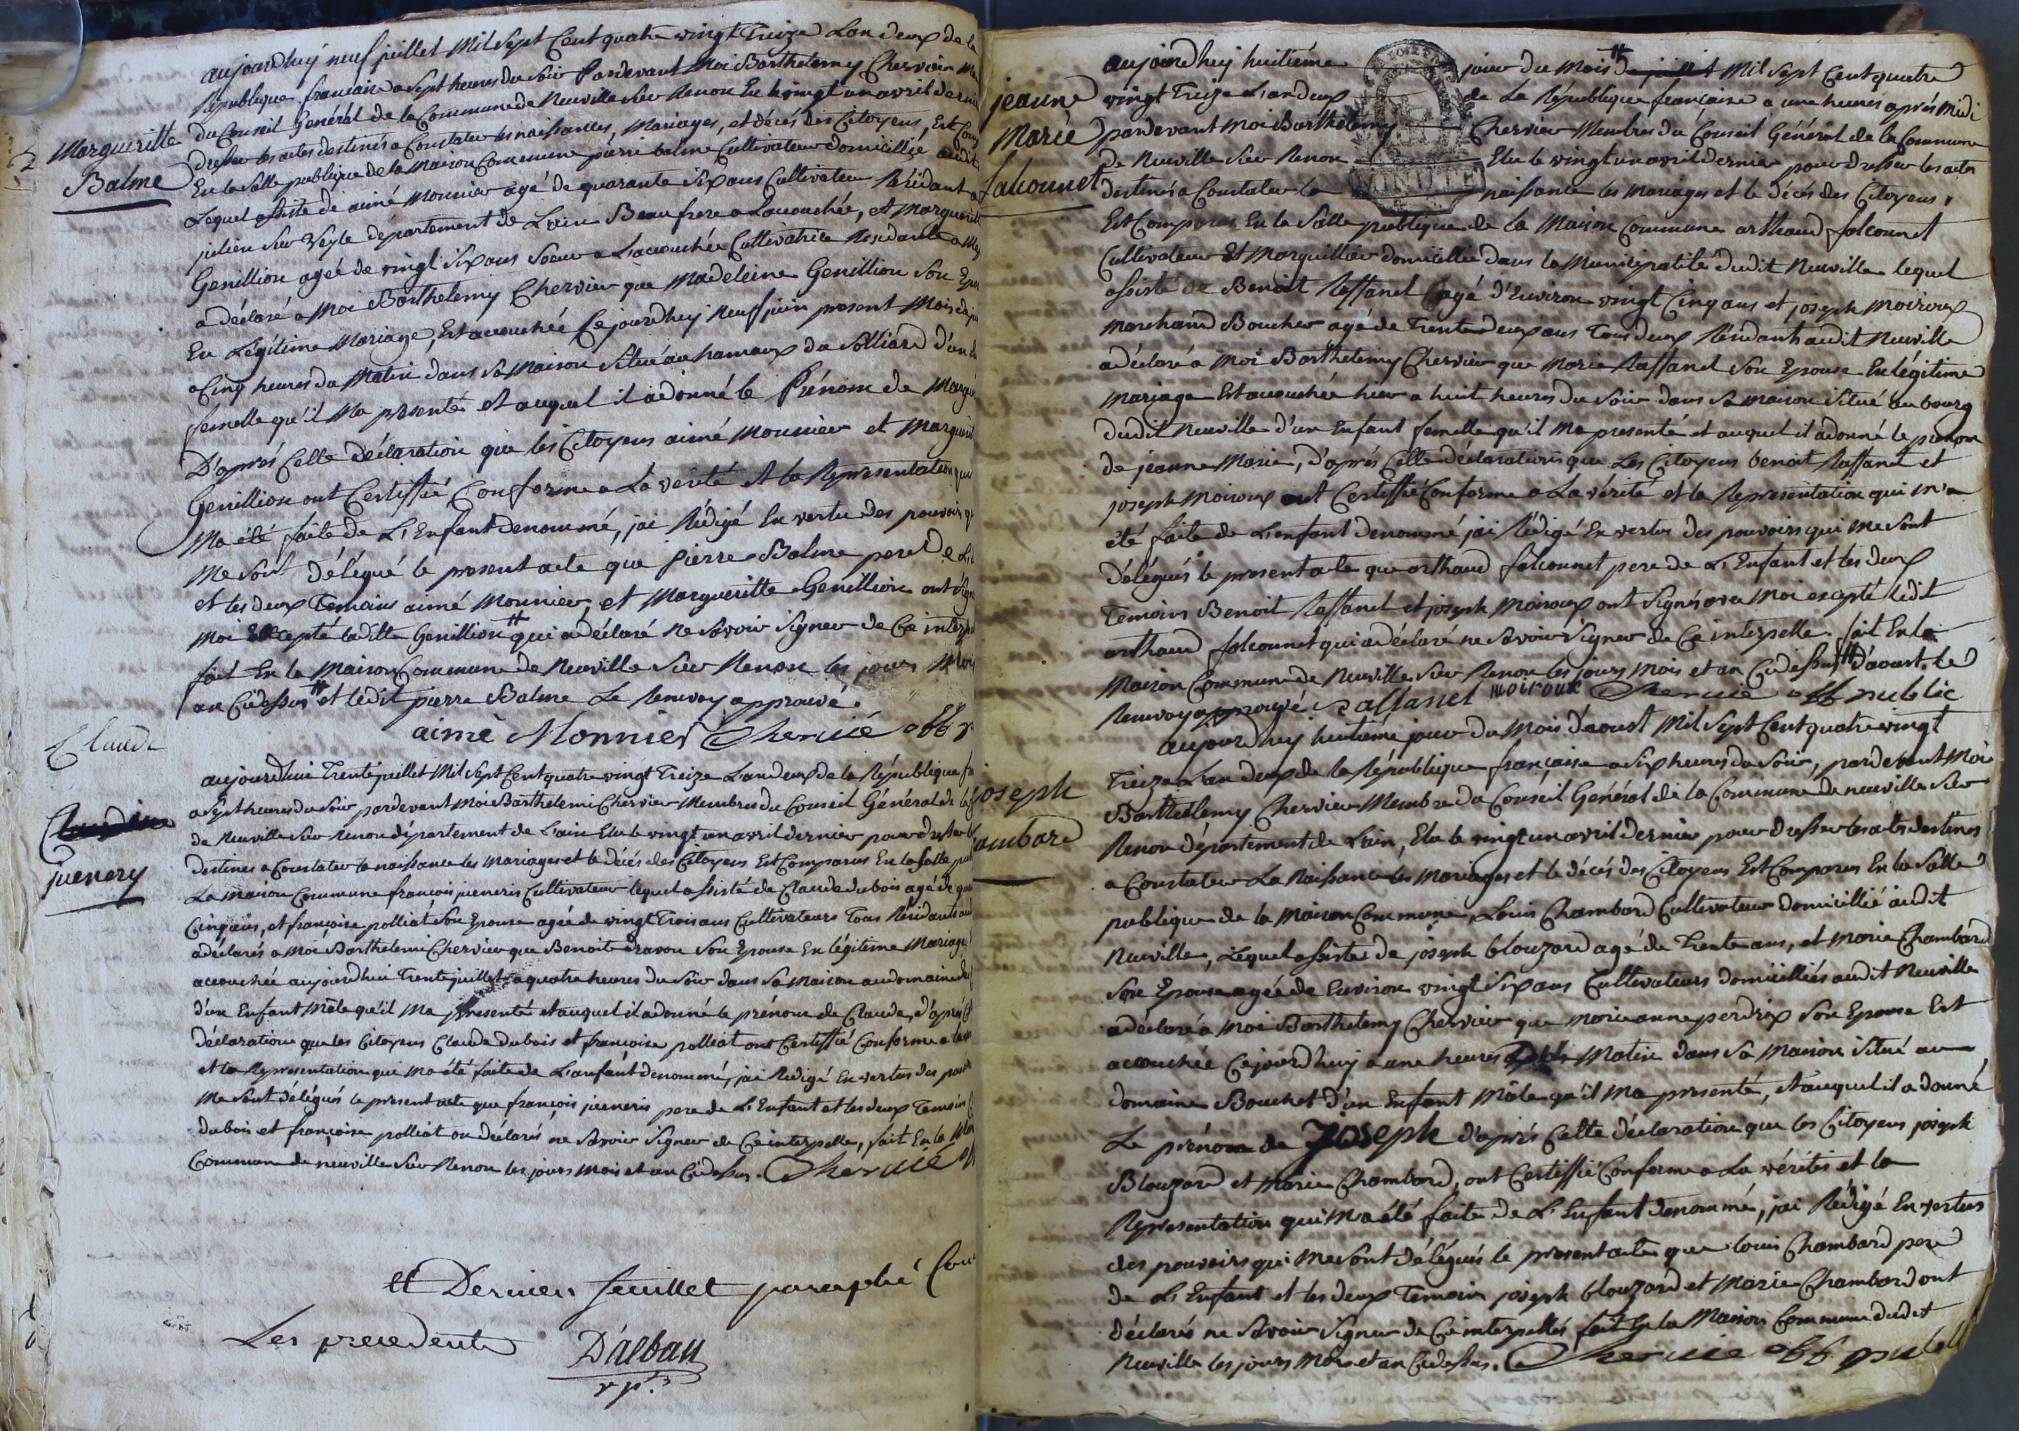 Margueritte
Balme
aujourdhuy neuf juillet Mil Sept Cent quatre vingt Treize L'an deux de la
République francaise a Sept heures du Soir Pardevant Moi Barthelemy Chervier
du Conseil Général de la Commune de Neuville Sur Renon Elu le vingt un avril dernier
dresser les actes destinés a Constater les naissances, Mariages, et décès des Citoyens, Est
En la Salle publique de la Maison Commune pierre balme Cultivateur domicillié audit
Lequel assisté de aimé Monnier agé de quarante Six ans Cultivateur Résidant a
julien Sur Veyle département de L'ain Beau frere a Laccouchée, et Margueritte
Genillion agée de vingt Six ans Soeur a L'accouchée Cultivatrice Residante a
a déclaré a Moi Barthelemy Chervier que Madeleine Genillion Son
En Légitime Mariage, Est accouchée Ce jourdhuy Neuf juin present Mois
a Cinq heures du Matin dans Sa Maison Situé au hameaux du Solliard d'un
femelle qu'il Ma presenté et auquel il a donné le Prénom de
D'aprés Cette déclaration que les Citoyens aimé Monnier et
Genillion ont Certiffié Conforme a La verité et la Representation qui
Ma été faite de L'Enfant denommé, jai Rédigé En vertu des pouvoirs
Me Sont délégué le present acte que Pierre Balme pere De
et les deux Temoins aimé Monnier, et Margueritte Genillion ont
Moi Excepté laditte Genillion # qui a déclaré Ne Savoir Signer de Ce
fait En la Maison Commune de Neuville Sur Renon les jours
an Cidessus # et ledit pierre Balme Le Renvoy approuvé.
aimé Monnier Chervié off
Claude
juenery
aujourdhui Trente juillet Mil Sept Cent quatre vingt Treize L'an deux de la République
a Sept heures du Soir pardevant Moi Barthelemi Chervier Membres du Conseil Général de la
de Neuville Sur Renon département de L'ain Elu le vingt un avril dernier pour dresser
destinés a Constater la naissance les Mariages et le décès des Citoyens Est Comparus En la Salle
La Maison Commune francois jueneris Cultivateur lequel assisté de Claude dubois agé de
Cinq ans, et françoise polliat Son Epouse agée de vingt Trois ans Cultivateurs Tous Résidants
a déclarés a Moi Barthelemi Chervier que Benoite Son Epouse En légitime Mariage
accouchée aujourdhui Trente juillet a quatre heures du Soir dans Sa Maison au domaine
d'un Enfant Mâle qu'il Ma presenté et auquel il a donné le prénom de Claude, d'aprés
déclaration que les Citoyens Claude dubois et françoise polliat ont Certiffié Conforme a
et la Representation que Ma été faite de L'anfant denommé, jai Redigé En vertus des
Me Sont délégués le present acte que françois jueneris pere de L'Enfant et les deux Temoins
dubois et françoise polliat on déclarés ne Savoir Signer de Ce interpelle, fait En la
Commune de neuville Sur Renon les jours mois et an Cidessus. Chervié
et Dernier feuillet paraphé
Les precedents
D'alban
jeanne
Marie
falcounet
aujourdhuy huitiéme jour du Mois # Mil Sept Cent quatre
vingt Treize L'an deux de La République française a une heures aprés Midi
pardevant Moi Barthelemy Chervier Membres du Conseil Général de la Commune
de Neuville Sur Renon Elu le vingt un avril dernier pour dresser les actes
destinés a Constater la naissance les Mariages et le décés des Citoyens,
Est Comparus En la Salle publique de la Maison Commune arthaud falcounet
Cultivateur Et Marguillier domicilliée dans la Municipalité dudit Neuville lequel
assisté de Benoit Raffanel agé d'Environ vingt Cinq ans et joseph Moiroux
Marchand Boucher agé de Trente deux ans Tous deux Résidants audit Neuville
a déclaré a Moi Barthelemy Chervier que Marie Raffanel Son Epouse En légitime
Mariage Est accouchée hier a huit heures du Soir dans Sa maison Situé au bourg
dudit Neuville d'un Enfant femelle qu'il Ma presenté et auquel il a donné le prenom
de jeanne Marie, d'aprés Cette déclaration que Les Citoyens benoit Raffanel et
joseph Moiroux ont Certiffié Conforme a La vérité et la Representation qui m'a
été faite de L'enfant denommé jai Rédigé En vertus des pouvoirs qui Me Sont
délégués le present acte que arthaud falcounet pere de L'Enfant et les deux
Temoins Benoit Raffanel et joseph Moiroux ont Signés avec Moi excepté ledit
arthaud falcounet qui a déclaré ne Savoir Signer de Ce interpelle. fait En la
Maison Commune de Neuville Sur Renon les jours Mois et an Cidessus # d'aoust. le
Renvoy approuvé Raffanel moiroux Chervié off public
joseph
ambard
aujourdhuy huitiémé jour du Mois d'aoust Mil Sept Cent quatre vingt
Treize L'an deux de la République française a Six heures du Soir, pardevant Moi
Barthelemy Chervier Membre du Conseil Général de la Commune de neuville Sur
Renon département de L'ain, Elu le vingt un avril dernier pour dresser les actes destinés
a Constater La Naissance les Mariages et le décés des Citoyens Est Comparus En la Salle
publique de la Maison Commune, Louis Chambard Cultivateur domicillié audit
Neuville, Lequel assisté de joseph blouzard agé de Trente ans, et Marie Chambard
Son Epouse agée de Environ vingt Six ans Cultivateurs domicilliés audit Neuville
a déclaré a Moi Barthelemy Chervier que Marie anne perdrix Son Epouse Est
accouchée Cejourdhuy a une heures Matin dans Sa Maison Situé au
domaine Bouchet d'un Enfant Mâle qu'il Ma presenté, et auquel il a donné
Le prénom de Joseph d'aprés Cette déclaration que les Citoyens joseph
Blouzard et Marie Chambard, ont Certiffié Conforme a La vérités et la
Representation qui Ma été faite de L'Enfant denommé, jai Rédigé En vertus
des pouvoirs qui Me Sont délégués le present acte que louis Chambard pere
de L'Enfant et les deux Temoins joseph blouzard et Marie Chambard ont
déclarés ne Savoir Signer de Ce interpellés fait En la Maison Commune dudit
Neuville les jours Mois et an Cidessus. Chervié off publi